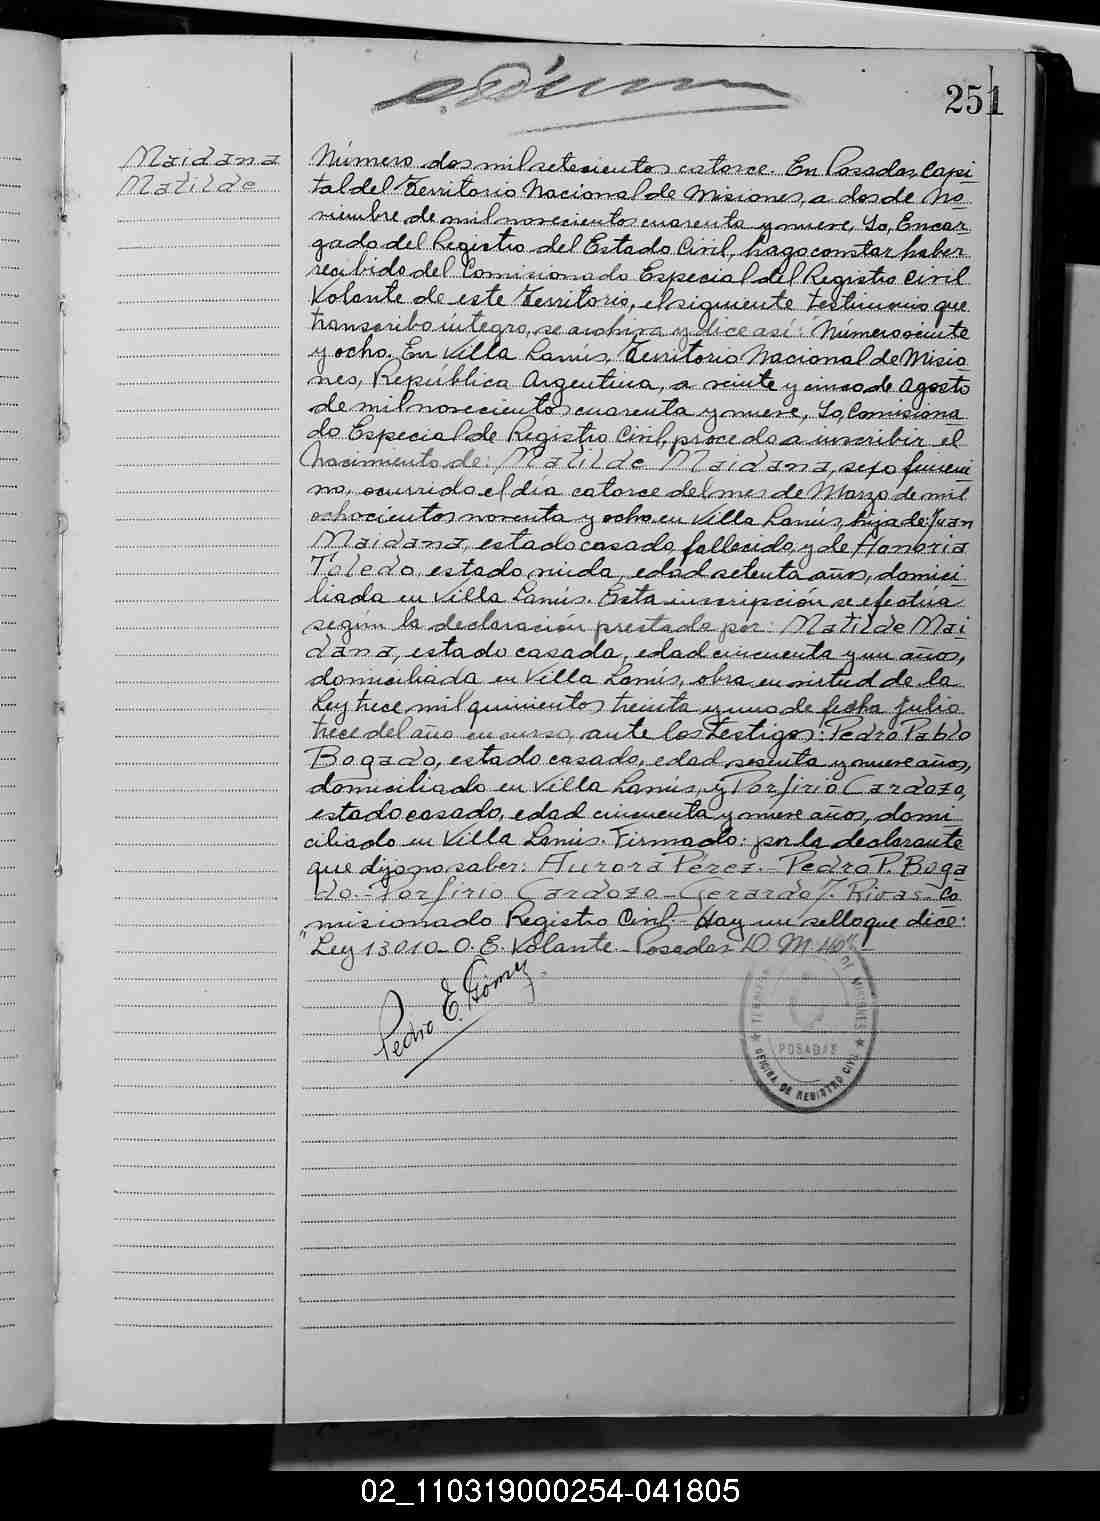 251
Maidana
Matilde
Número dos mil setecientos catorce. En Posadas, Capi-
tal del Territorio Nacional de Misiones, a dos de No-
viembre de mil novecientos cuarenta y nueve, Yo, Encar-
gado del Registro del Estado Civil, hago constar haber
recibido del Comisionado Especial del Registro Civil
Volante de este Territorio, el siguiente testimonio que
transcribo íntegro, se archiva y dice así: "Número veinte
y ocho. En Villa Lanús, Territorio Nacional de Misio-
nes, República Argentina, a veinte y cinco de Agosto
de mil novecientos cuarenta y nueve, Yo, Comisiona-
do Especial de Registro Civil, procedo a inscribir el
Nacimiento de: Matilde Maidana, sexo femeni-
no, ocurrido el día catorce del mes de Marzo de mil
ochocientos noventa y ocho en Villa Lanús, hija de: Juan
Maidana, estado casado, fallecido, y de Honoria
Toledo, estado viuda, edad setenta años, domici-
liada en Villa Lanús. Esta inscripción se efectúa
según la declaración prestada por: Matilde Mai-
dana, estado casada, edad cincuenta y un años,
domiciliada en Villa Lanús, obra en virtud de la
Ley trece mil quinientos treinta y uno de fecha julio
trece del año en curso, ante los testigos: Pedro Pablo
Bogado, estado casado, edad sesenta y nueve años,
domiciliado en Villa Lanús, y Porfirio Cardozo,
estado casado, edad cincuenta y nueve años, domi-
ciliado en Villa Lanús. Firmado: por la declarante
que dijo no saber: Aurora Pérez.- Pedro P. Boga-
do - Porfirio Cardozo - Gerardo J. Rivas - Co-
misionado Registro Civil.- Hay un sello que dice:
"Ley 13010 - O. E. Volante - Posadas
Pedro E. Gómez
DE MISIONES
POSADAS
OFICINA DE REGISTRO CIVIL
02_110319000254-041805